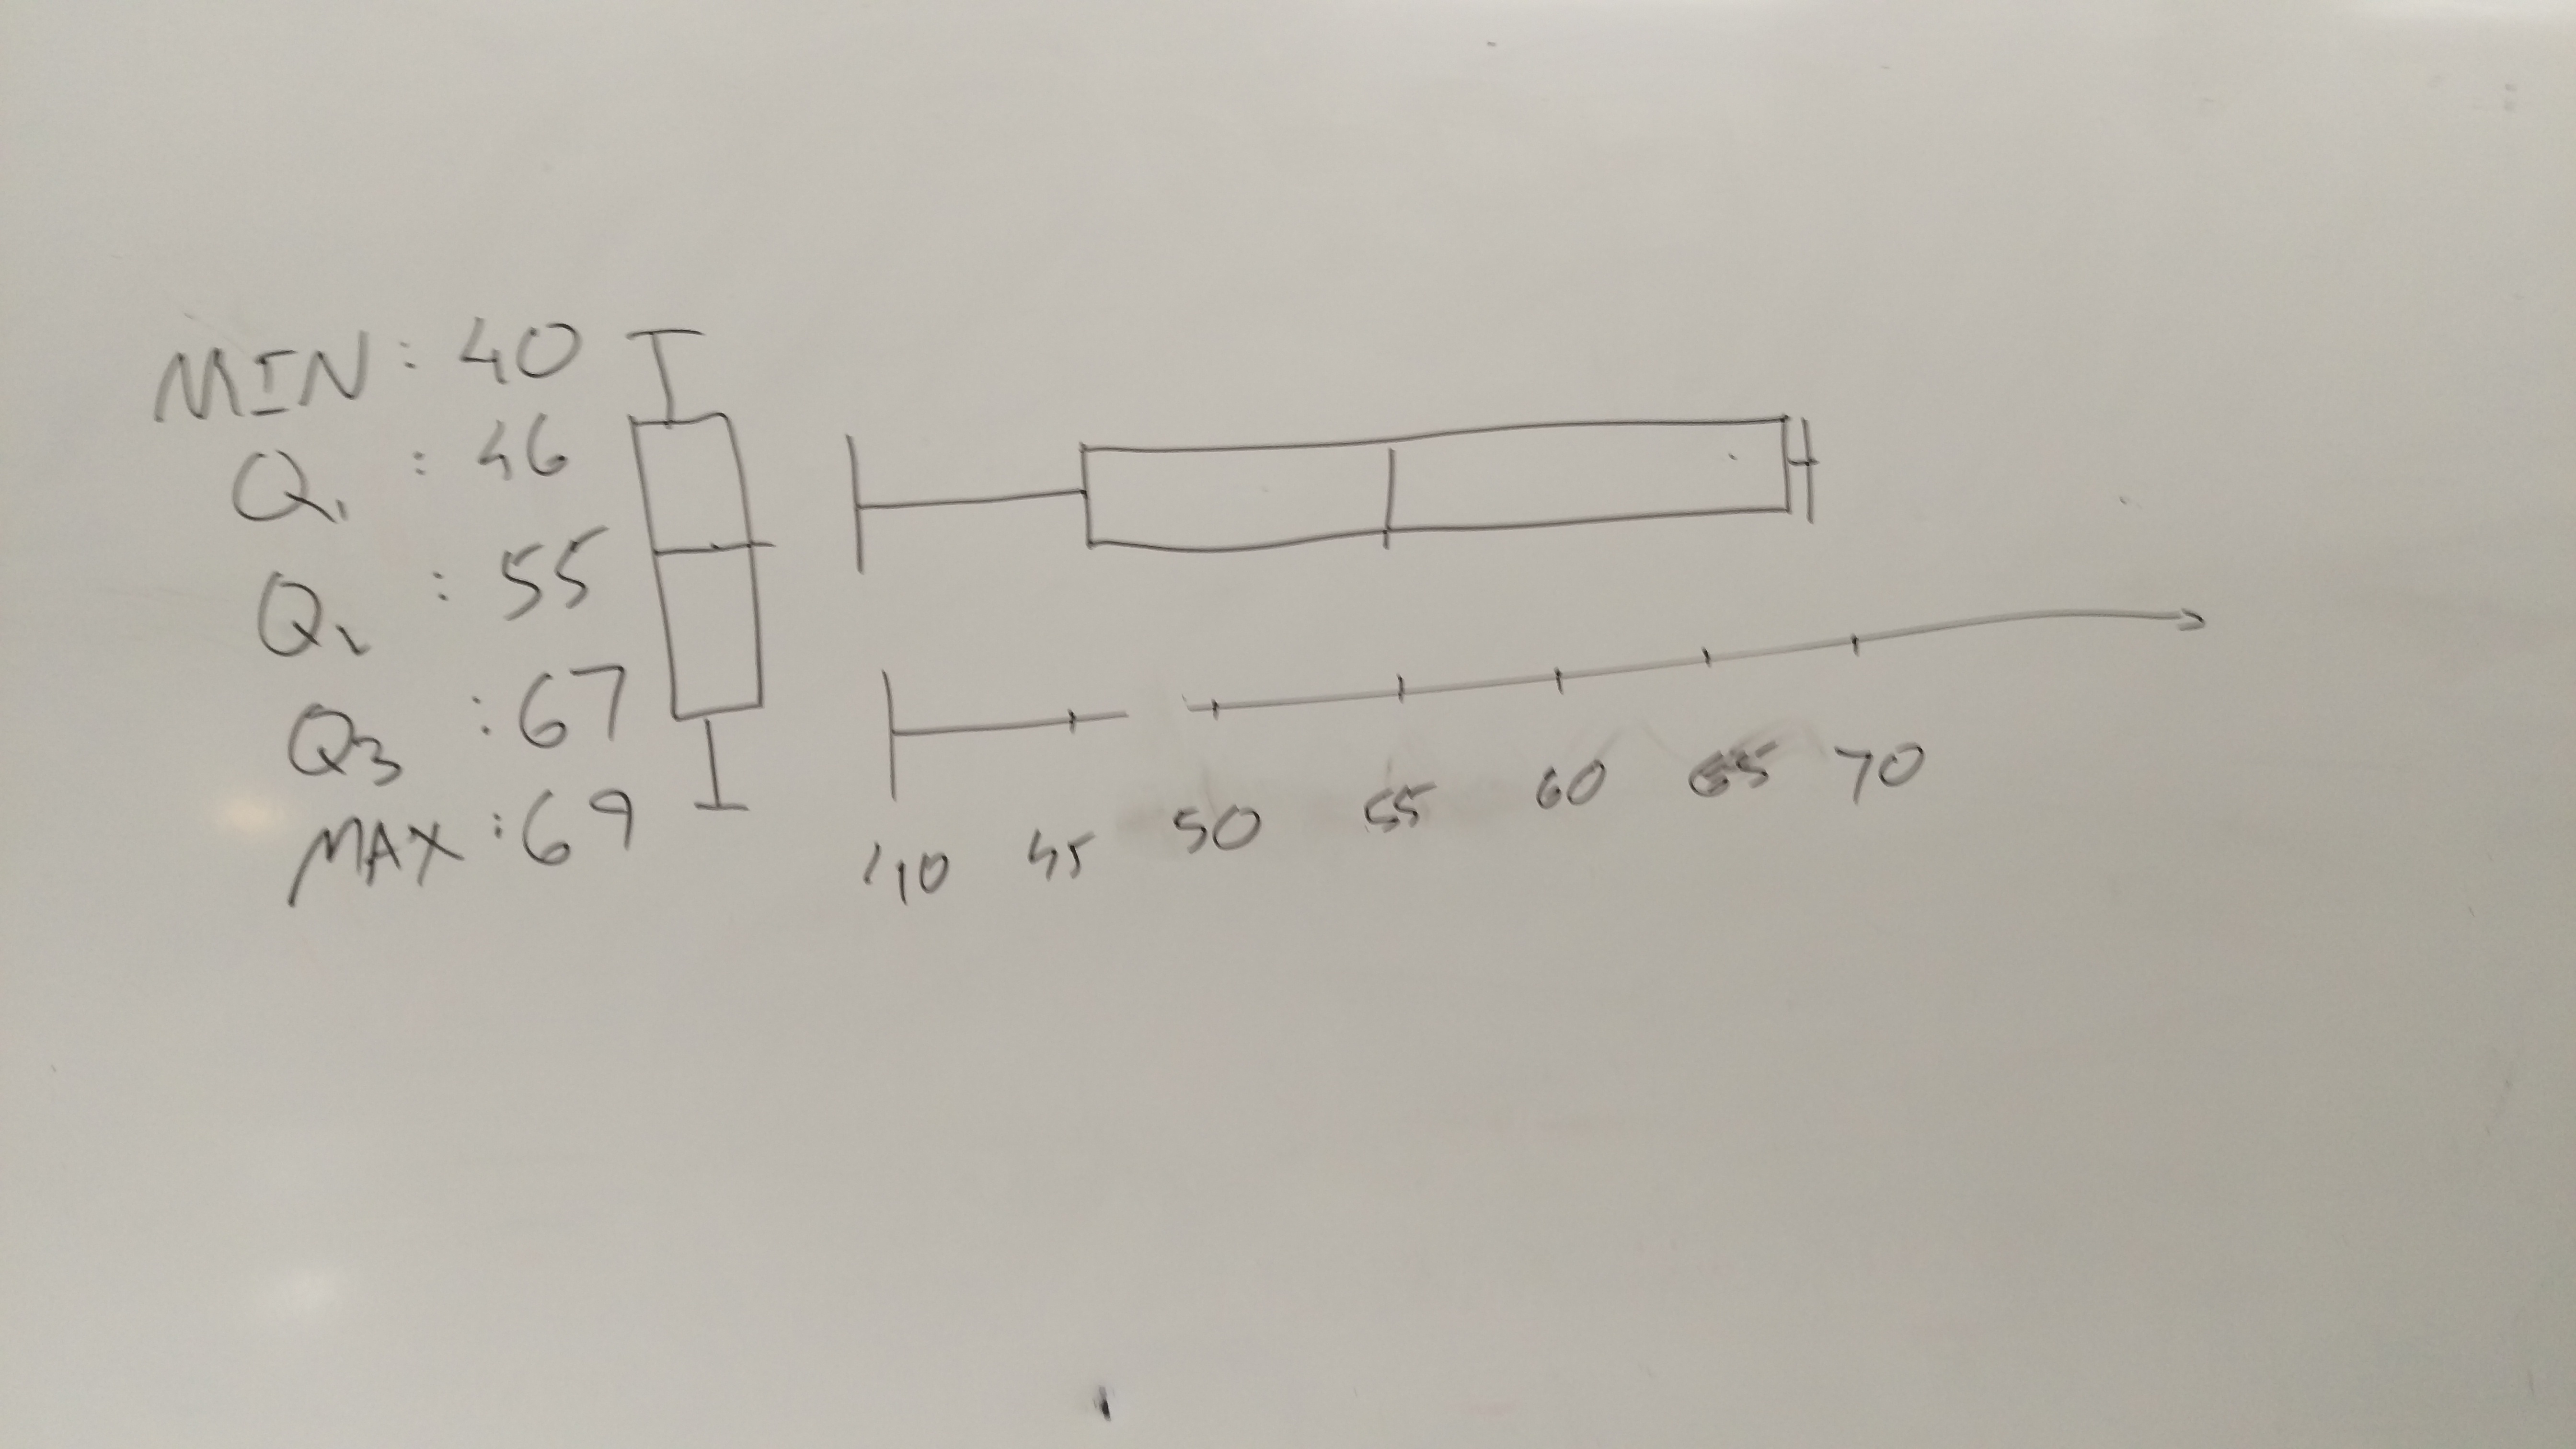 MIN: 40
Q1 : 46
Q2 : 55
Q3 : 67
MAX : 69
40 45 50 55 60 65 70